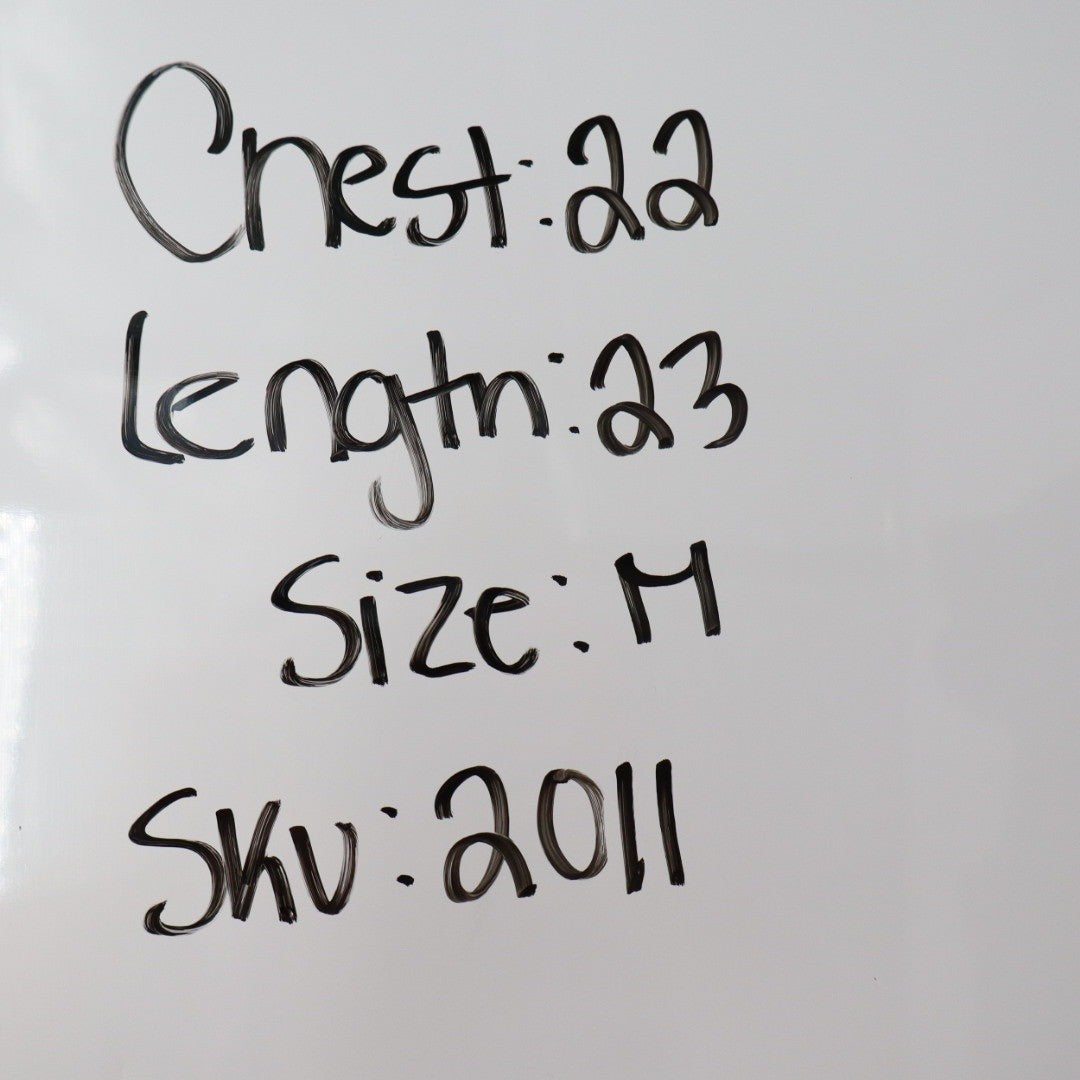 Chest: 22
Length: 23
Size: M
Sku: 2011